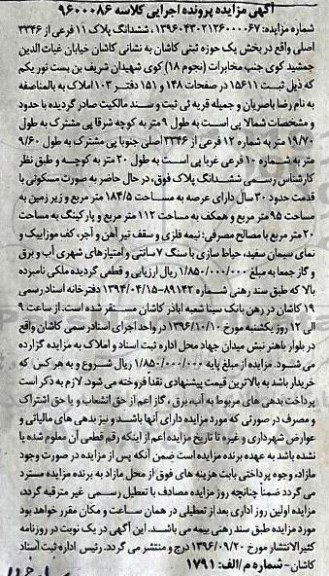 آگهی مزایده پرونده اجرایی کلاسه ۹۶۰۰۰۸۶
شماره مزایده: ۱۳۹۶۰۴۳۰۲۱۳۶۰۰۰۰۶۷، ششدانگ پلاک ۱۱ فرعی از ۳۳۴۶
اصلی واقع در بخش یک حوزه ثبتی کاشان به نشانی کاشان خیابان غیاث الدین
جمشید کوی جنب مخابرات (نجوم ۱۸) کوی شهیدان شریف بن بست نور یکم
که ذیل ثبت ۱۵۶۱۱ در صفحات ۱۴۸ و ۱۵۱ دفتر ۱۰۳ املاک به بالمناصفه
به نام رضا باصریان و جمیله قربه ئی ثبت و سند مالکیت صادر گردیده با حدود
و مشخصات شمالا پی است به طول ۹ متر به کوچه شرقا پی مشترک به طول
۱۹/۷۰ متر به شماره ۱۲ فرعی از ۳۳۴۶ اصلی جنوبا پی مشترک به طول ۹/۶۰
متر به شماره ۱۰ فرعی غربا پی است به طول ۲۰ متر به کوچه و طبق نظر
کارشناس رسمی ششدانگ پلاک فوق، در حال حاضر به صورت مسکونی با
قدمت حدود ۳۰ سال دارای عرصه به مساحت ۱۸۴/۵ متر مربع و زیر زمین به
مساحت ۹۵ متر مربع و همکف به مساحت ۱۱۲ متر مربع و پارکینگ به مساحت
۲۰ متر مربع با مصالح مصرفی: نیمه فلزی و سقف تیر آهن و آجر، کف موزاییک و
نمای سیمان سفید، حیاط سازی با سنگ ۷ سانتی و امتیازهای شهری آب و برق
و گاز جمعا به مبلغ ۱/۸۵۰/۰۰۰/۰۰۰ ریال ارزیابی و قطعی گردیده ملکی نامبرده
بالا که طبق سند رهنی شماره ۸۹۱۴۲-۱۳۹۴/۰۴/۱۵ دفترخانه اسناد رسمی
۱۹ کاشان در رهن بانک سپا شعبه اباذر کاشان مستقر شده است. از ساعت ۹
الی ۱۲ روز یکشنبه مورخ ۱۳۹۶/۱۰/۱۰ در واحد اجرای اسناد رسمی کاشان واقع
در بلوار باهنر نبش میدان جهاد محل اداره ثبت اسناد و املاک به مزایده گزارده
می شود. مزایده از مبلغ پایه ۱/۸۵۰/۰۰۰/۰۰۰ ریال شروع و به هر کس که
خریدار باشد به بالاترین قیمت پیشنهادی نقدا فروخته می شود. لازم به ذکر است
پرداخت بدهی های مربوط به آب، برق، گاز اعم از حق انشعاب و یا حق اشتراک
و مصرف در صورتی که مورد مزایده دارای آنها باشد و نیز بدهی های مالیاتی و
عوارض شهرداری و غیره تا تاریخ مزایده اعم از اینکه رقم قطعی آن معلوم شده یا
نشده باشد به عهده برنده مزایده است ضمن آنکه پس از مزایده در صورت وجود
مازاد، وجوه پرداختی بابت هزینه های فوق از محل مازاد به برنده مزایده مسترد
می گردد ضمنا چنانچه روز مزایده مصادف با تعطیل رسمی غیر مترقبه گردد،
مزایده اولین روز اداری بعد از تعطیلی در همان ساعت و مکان مقرر خواهد بود
مورد مزایده طبق سند رهنی بیمه می باشد. این آگهی در یک نوبت در روزنامه
کثیرالانتشار مورخ ۱۳۹۶/۰۹/۲۰ درج و منتشر می گردد. رئیس اداره ثبت اسناد
کاشان - شماره م/الف: ۱۷۹۱